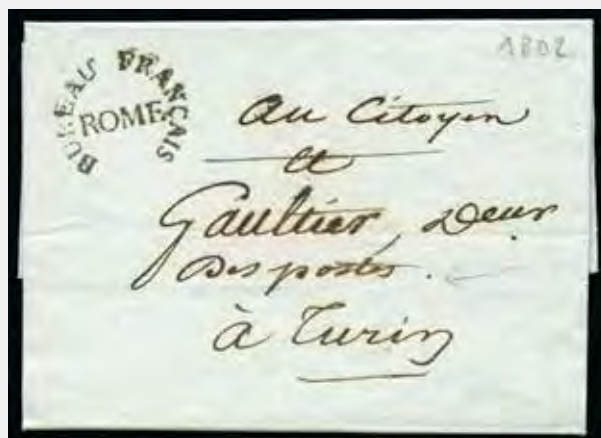 BUREAU FRANÇAIS
ROME
1802
Au Citoyen
Gaultier, Deur
Des postes.
à Turin